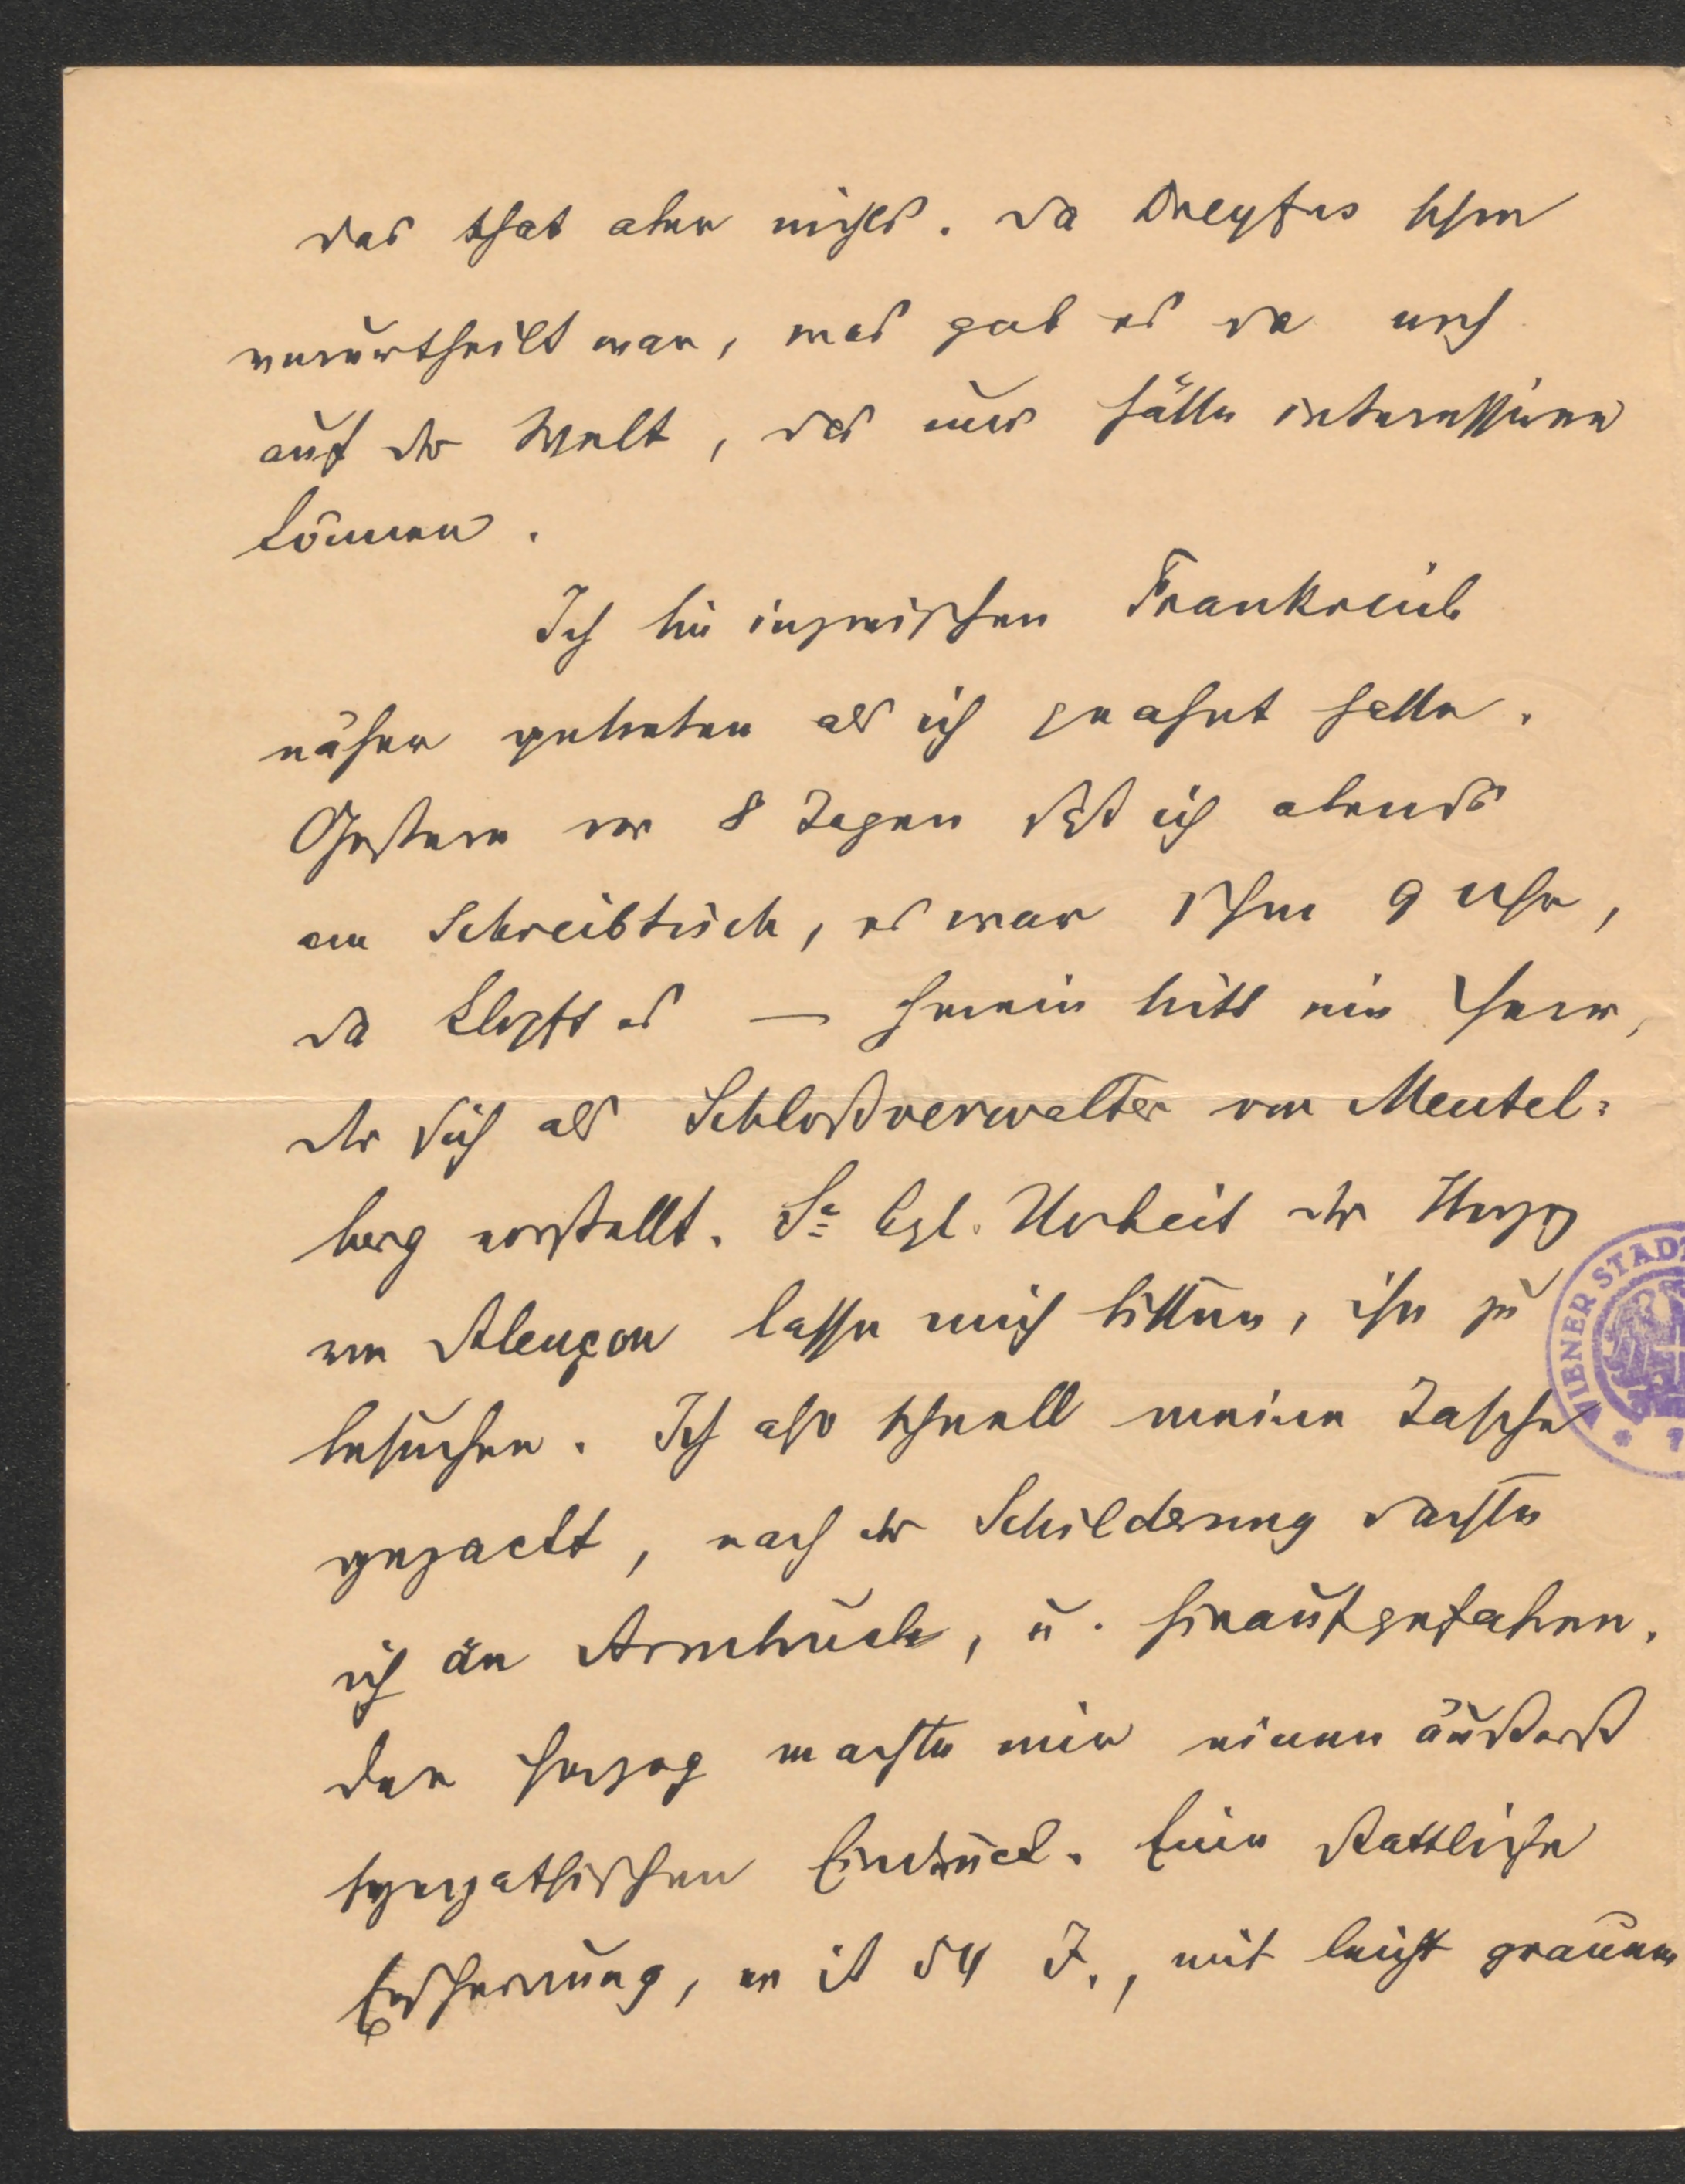 das that aber nichts. Da Dreyfus schon
verurtheilt war, was gab es da noch
auf der Welt, das uns hätte interessiren
können.
Ich bin inzwischen Frankreich
näher getreten als ich geahnt hatte.
Gestern vor 8 Tagen saß ich abends
am Schreibtisch, es war schon 9 Uhr,
da klopft es — herein tritt ein Herr,
der sich als Schloßverwalter von Mentel=
berg vorstellt. Se kgl. Hoheit der Herzog
von Alençon lasse mich bitten, ihn zu
besuchen. Ich also schnell meine Tasche
gepackt, nach der Schilderung dachte
ich an Armbruch, u. hinaufgefahren.
Der Herzog machte mir einen äußerst
sympathischen Eindruck. Eine stattliche
Erscheinung, er ist 54 J., mit leicht grauem
WIENER STADT